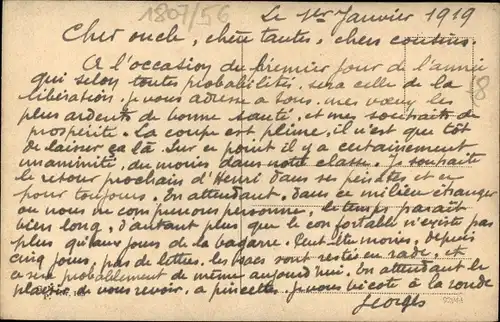 1807/56
Le 1er Janvier 1919
Cher oncle, chère tantes, chers cousins.
A l'occasion du premier jour de l'année
qui selon toutes probabilités, sera celle de la
libération. je vous adresse a tous. mes vœux les
plus ardents de bonne santé, et mes souhaits de
prospérité. La coupe est pleine, il n'est que tôt
de laisser ça là. Sur ce point il y a certainement
unanimité, du moins dans notre classe. Je souhaite
le retour prochain d'Henri dans ses et
pour toujours. En attendant, dans ce milieu étranger
ou nous ne comprenons personne, le temps parait
bien long, d'autant plus que le confortable n'existe pas
plus qu'aux jours de la bagarre. Peut-être moins, depuis
cinq jours, pas de lettres. les sacs sont restés en rade, et
ce sera probablement de même aujourd'hui. En attendant le
plaisir de vous revoir, a pincettes. Je vous bécote à la ronde
Georges
8